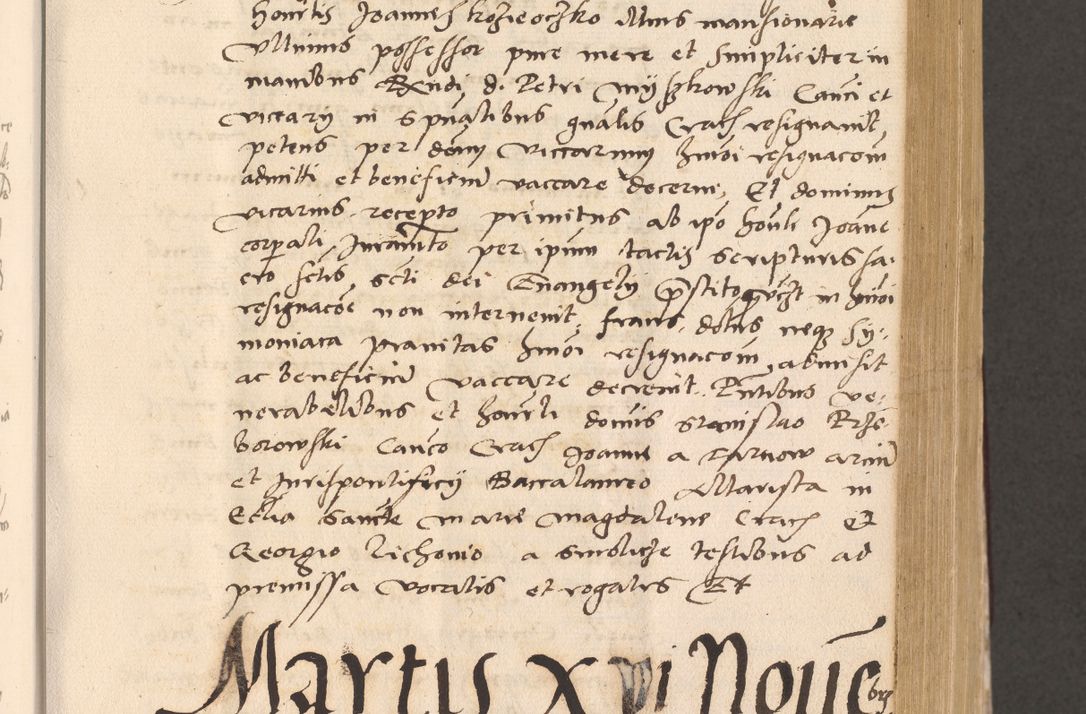 honestis Joannes kozieoczko illius mansionarie
Ultimus possessor pure mere et simpliciter in
manibus Rndi d. Petri Myszkowski Canci et
vicarij in spualibus gnalis Crac resignavit,
petens per dcum viccarium hmoi resignacom
admitti et beneficiu vaccare decerni, Et dominus
vicarius, recepto primitus ab ipo honli Joane
corporali Juramto per ipsum tactis scripturis sa-
cro sctis, scti dei Evangelij pstito in hmoi
resignacoe non intervenit, fraus, dolus neque sy-
moniaca pravitas hmoi resignacom admisit
ac beneficiu vaccare decrevit. Pntibus ve-
nerabilibus et honli domis Stanislao
borowski Canco Crac Joanne a Tarnow arciu
et Jurispontificij Baccalaureo Altarista in
Ecclia sancte marie magdalene Crac Et
Georgio Lichonio a testibus ad
premissa vocatis et rogatis Et
Martis xvi Novebris